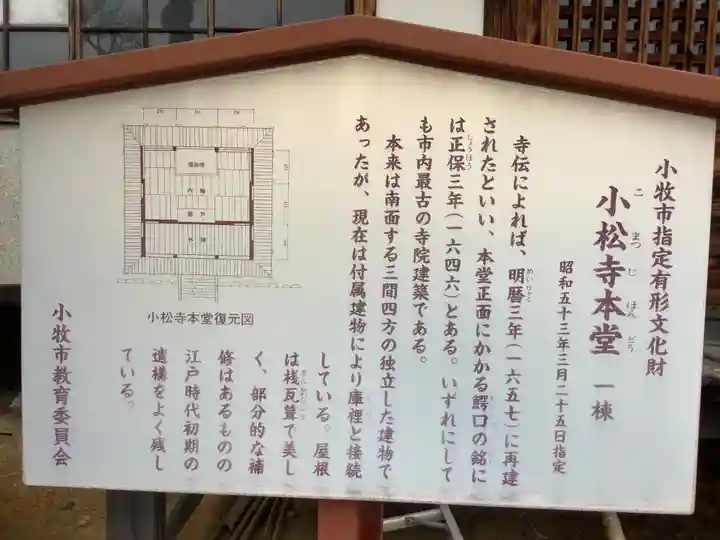 小牧市指定有形文化財
小松寺本堂 一棟
こ まつ じ ほん どう
昭和五十三年三月二十五日指定
寺伝によれば、明暦三年(一六五七)に再建
めいりゃく
されたといい、本堂正面にかかる鰐口の銘に
は正保三年(一六四六)とある。いずれにして
しょうほう
も市内最古の寺院建築である。
本来は南面する三間四方の独立した建物で
あったが、現在は付属建物により庫裡と接続
している。屋根
は桟瓦葺で美し
く、部分的な補
修はあるものの
江戸時代初期の
遺構をよく残し
ている。
小松寺本堂復元図
内陣
外陣
小牧市教育委員会